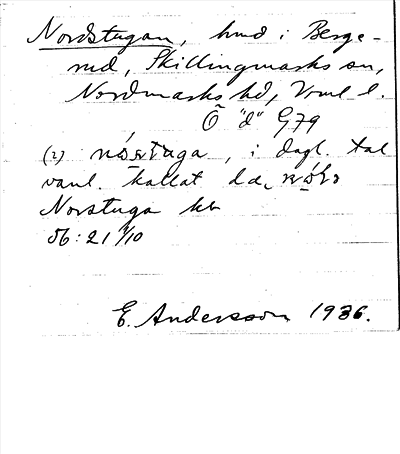 Nordstugan, hmd i Berge-
rud, Skillingmarks sn,
Nordmarks hd, Vrml. l.
Ö "d" G79
(2) nórstuga, i dagl. tal
vanl. kallat
Norstuga kb
06:21 9/10
E. Andersson 1936.